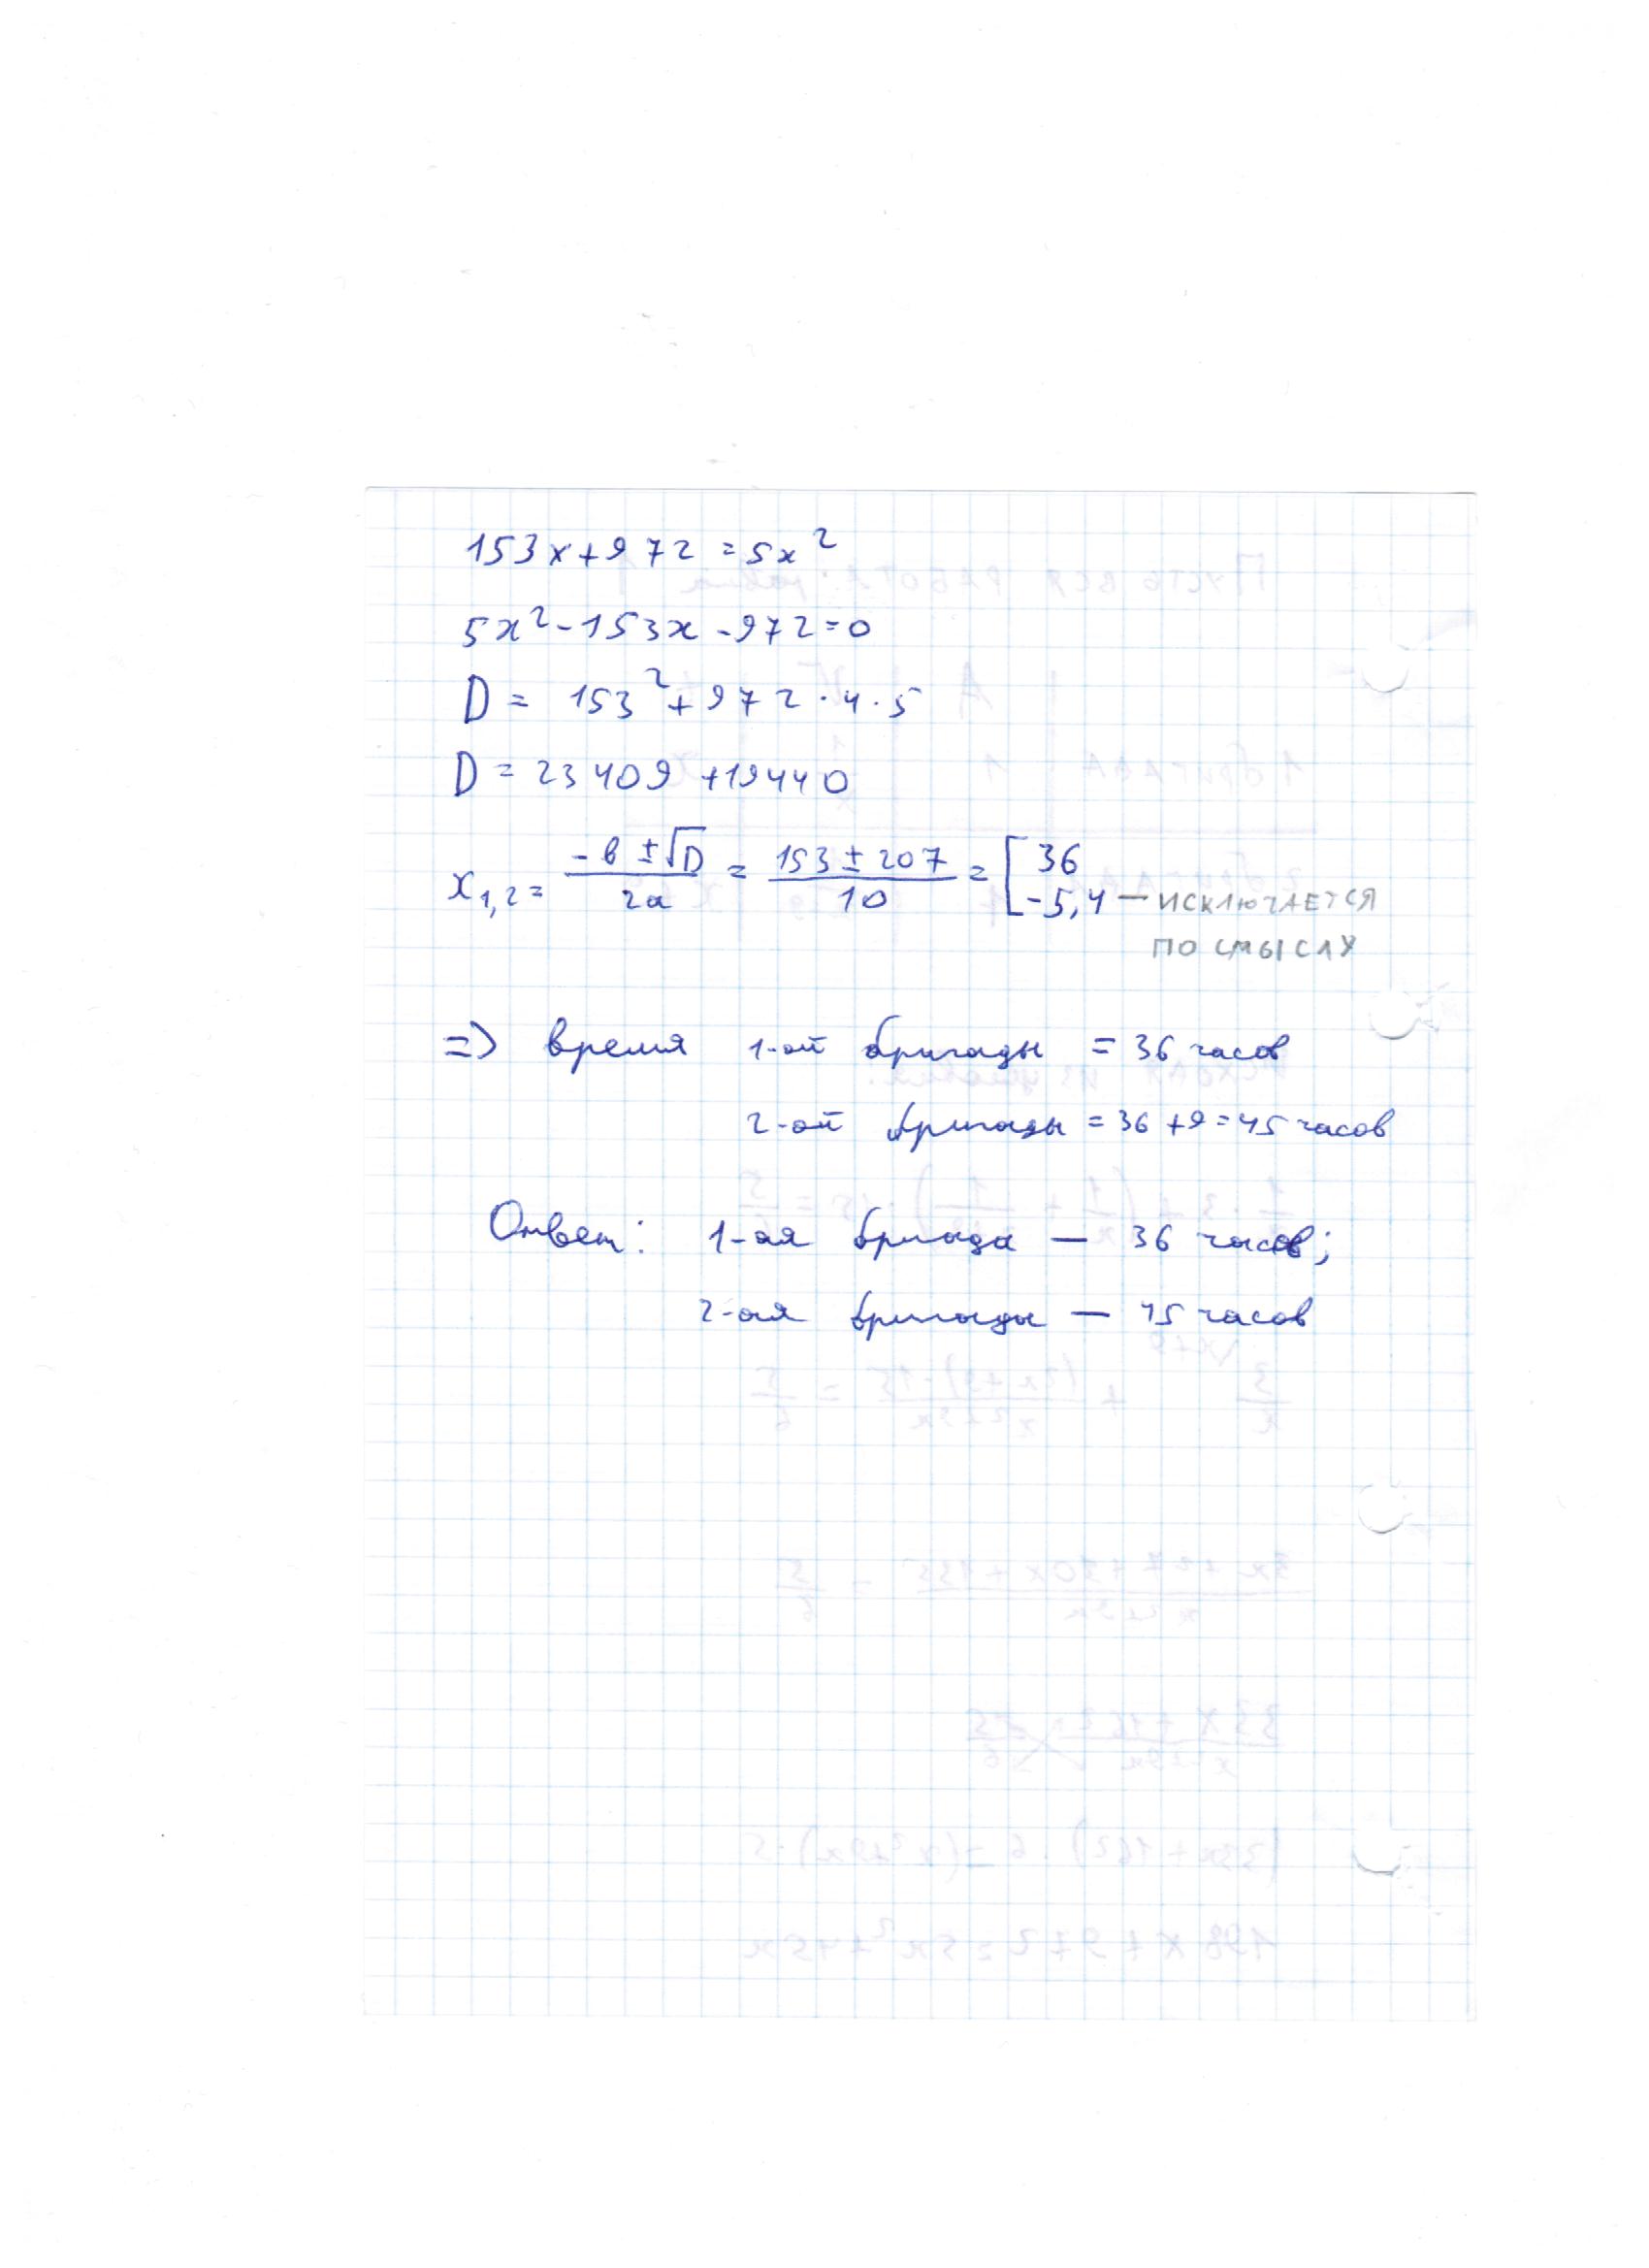 153x+972=5x²
5x²-153x-972=0
D= 153²+972·4·5
D=23409+19440
x₁,₂= (-b±√D)/2a = (153±207)/10 = [36
-5,4 — ИСКЛЮЧАЕТСЯ
ПО СМЫСЛУ
=> время 1-ой бригады = 36 часов
2-ой бригады = 36+9=45 часов
Ответ: 1-ая бригада — 36 часов;
2-ая бригады — 45 часов